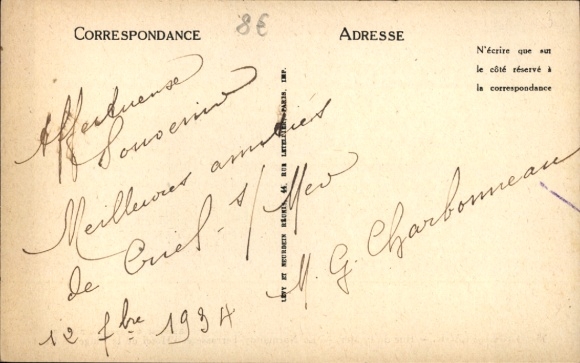 8€
CORRESPONDANCE
ADRESSE
N'écrire que sur
le côté réservé à
la correspondance
Affectueuse
Souvenir
Meilleures amitiés
de Criel s/Mer
M. G. Charbonneau
12 fbre 1934
LÉVY ET NEURDEIN RÉUNIS, 44, RUE LETELLIER, PARIS, IMP.